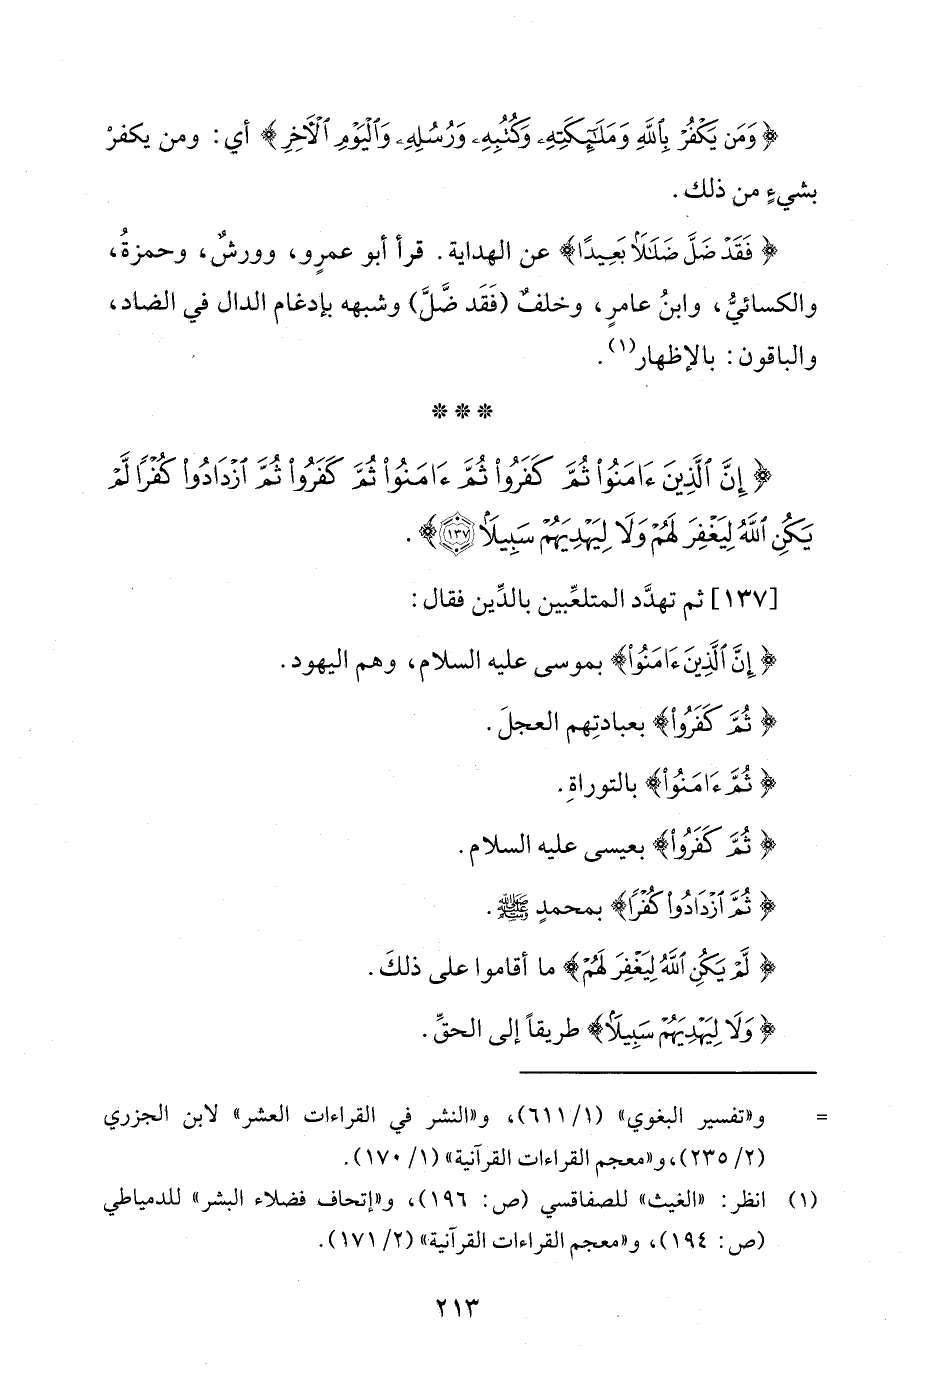 ﴿وَمَن يَكْفُرْ بِٱللَّهِ وَمَلَـٰٓئِكَتِهِۦ وَكُتُبِهِۦ وَرُسُلِهِۦ وَٱلْيَوْمِ ٱلْأٓخِرِ﴾ أي: ومن يكفرْ
بشيءٍ من ذلك.
﴿فَقَدْ ضَلَّ ضَلَـٰلًۢا بَعِيدًا﴾ عن الهداية. قرأ أبو عمرٍو، وورشٌ، وحمزةُ،
والكسائيُّ، وابنُ عامرٍ، وخلفٌ (فَقَد ضَّلَّ) وشبهه بإدغام الدال في الضاد،
والباقون: بالإظهار(١).
* * *
﴿إِنَّ ٱلَّذِينَ ءَامَنُوا۟ ثُمَّ كَفَرُوا۟ ثُمَّ ءَامَنُوا۟ ثُمَّ كَفَرُوا۟ ثُمَّ ٱزْدَادُوا۟ كُفْرًا لَّمْ
يَكُنِ ٱللَّهُ لِيَغْفِرَ لَهُمْ وَلَا لِيَهْدِيَهُمْ سَبِيلًۢا ١٣٧﴾.
[١٣٧] ثم تهدَّد المتلعِّبين بالدِّين فقال:
﴿إِنَّ ٱلَّذِينَ ءَامَنُوا۟﴾ بموسى عليه السلام، وهم اليهود.
﴿ثُمَّ كَفَرُوا۟﴾ بعبادتِهم العجلَ.
﴿ثُمَّ ءَامَنُوا۟﴾ بالتوراةِ.
﴿ثُمَّ كَفَرُوا۟﴾ بعيسى عليه السلام.
﴿ثُمَّ ٱزْدَادُوا۟ كُفْرًا﴾ بمحمدٍ ﷺ.
﴿لَّمْ يَكُنِ ٱللَّهُ لِيَغْفِرَ لَهُمْ﴾ ما أقاموا على ذلكَ.
﴿وَلَا لِيَهْدِيَهُمْ سَبِيلًۢا﴾ طريقاً إلى الحقِّ.
= و«تفسير البغوي» (١/ ٦١١)، و«النشر في القراءات العشر» لابن الجزري
(٢/ ٢٣٥)، و«معجم القراءات القرآنية» (١/ ١٧٠).
(١) انظر: «الغيث» للصفاقسي (ص: ١٩٦)، و«إتحاف فضلاء البشر» للدمياطي
(ص: ١٩٤)، و«معجم القراءات القرآنية» (٢/ ١٧١).
٢١٣